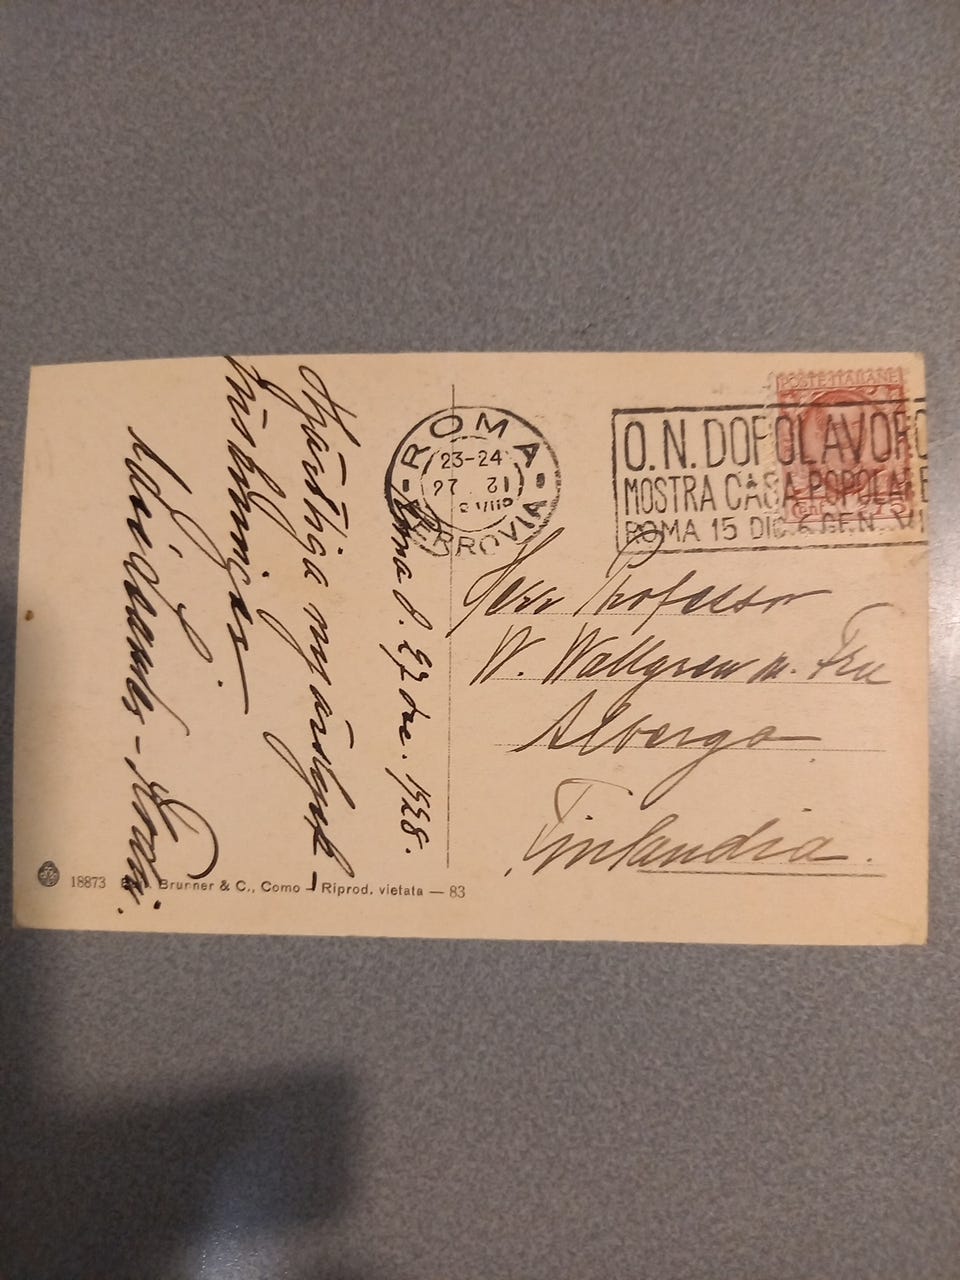 Roma d. 27 dec. 1928.
Hjärtliga nyårslyck-
önskningar
ROMA
23-24
27
FERROVIA
POSTE ITALIANE
O.N. DOPOLAVORO
MOSTRA CASA POPOLARE
ROMA 15 DIC. 6 GEN. VII
Herr Professor
W. Wallgren m. Fru
Alberga
Finlandia.
18873 Brunner & C., Como - Riprod. vietata — 83